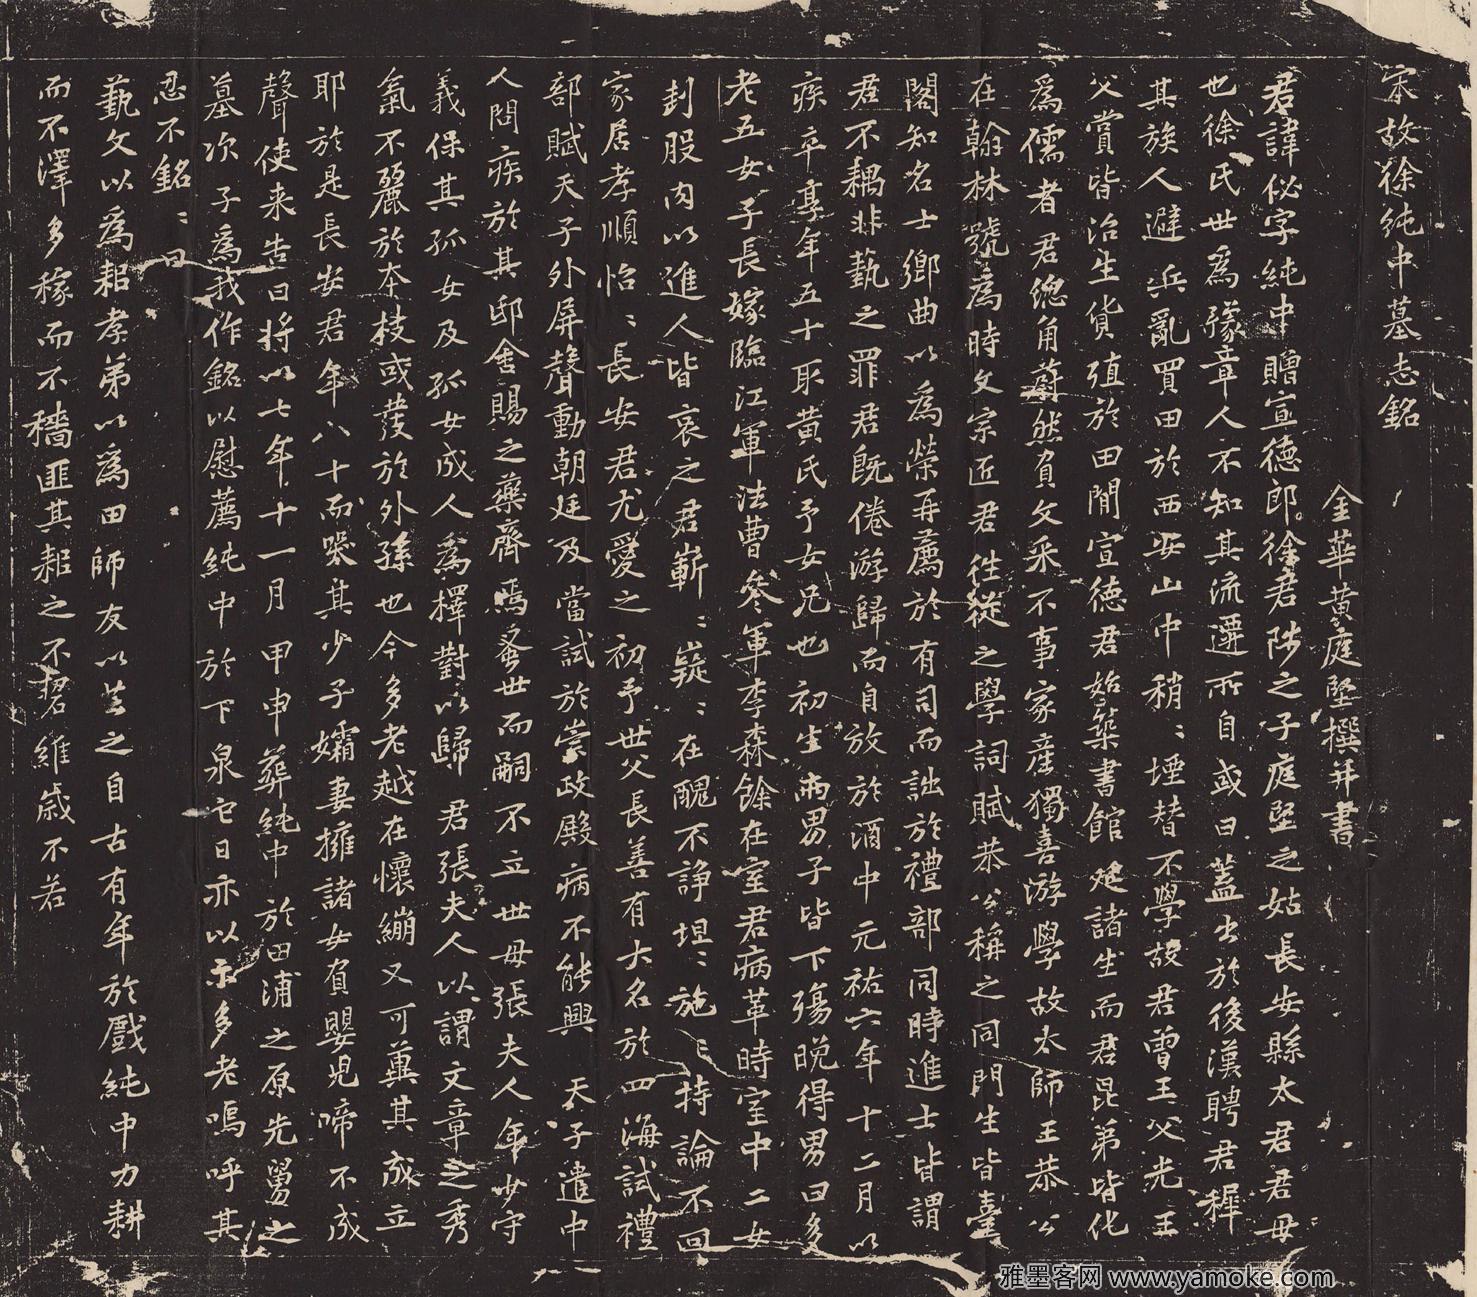 宋故徐純中墓志銘
金華黃庭堅撰并書
君諱佖字純中贈宣德郎徐君陟之子庭堅之姑長安縣太君君母
也徐氏世爲豫章人不知其流遷所自或曰蓋出於後漢聘君穉
其族人避兵亂買田於西安山中稍〻堙替不學故君曾王父光王
父賞皆治生貨殖於田間宣德君始築書館延諸生而君昆弟皆化
爲儒者君總角蔚然負文采不事家産獨喜游學故太師王恭公
在翰林號爲時文宗匠君徃從之學詞賦恭公稱之同門生皆臺
閣知名士鄉曲以爲榮再薦於有司而詘於禮部同時進士皆謂
君不耦非藝之罪君既倦游歸而自放於酒中元祐六年十二月以
疾卒享年五十取黃氏予女兄也初生兩男子皆下殤晚得男曰多
老五女子長嫁臨江軍法曹參軍李森餘在室君病革時室中二女
刲股肉以進人皆哀之君嶄〻嶷〻在醜不諍坦〻施〻持論不回
家居孝順怡〻長安君尤愛之初予世父長善有大名於四海試禮
部賦天子外屏聲動朝廷及當試於崇政殿病不能興 天子遣中
人問疾於其邸舍賜之藥齊焉蚤世而嗣不立世母張夫人年少守
義保其孤女及孤女成人爲擇對以歸 君張夫人以謂文章之秀
氣不麗於本枝或發於外孫也今多老越在懷繃又可冀其成立
耶於是長安君年八十而哭其少子孀妻擁諸女負嬰兒啼不成
聲使來告曰將以七年十一月甲申葬純中於田浦之原先舅之
墓次子爲我作銘以慰薦純中於下泉它日亦以示多老嗚呼其
忍不銘〻曰
藝文以爲耜孝弟以爲田師友以芸之自古有年於戲純中力耕
而不澤多稼而不穡匪其耜之不䂮維歲不若
雅墨客网 www.yamoke.com